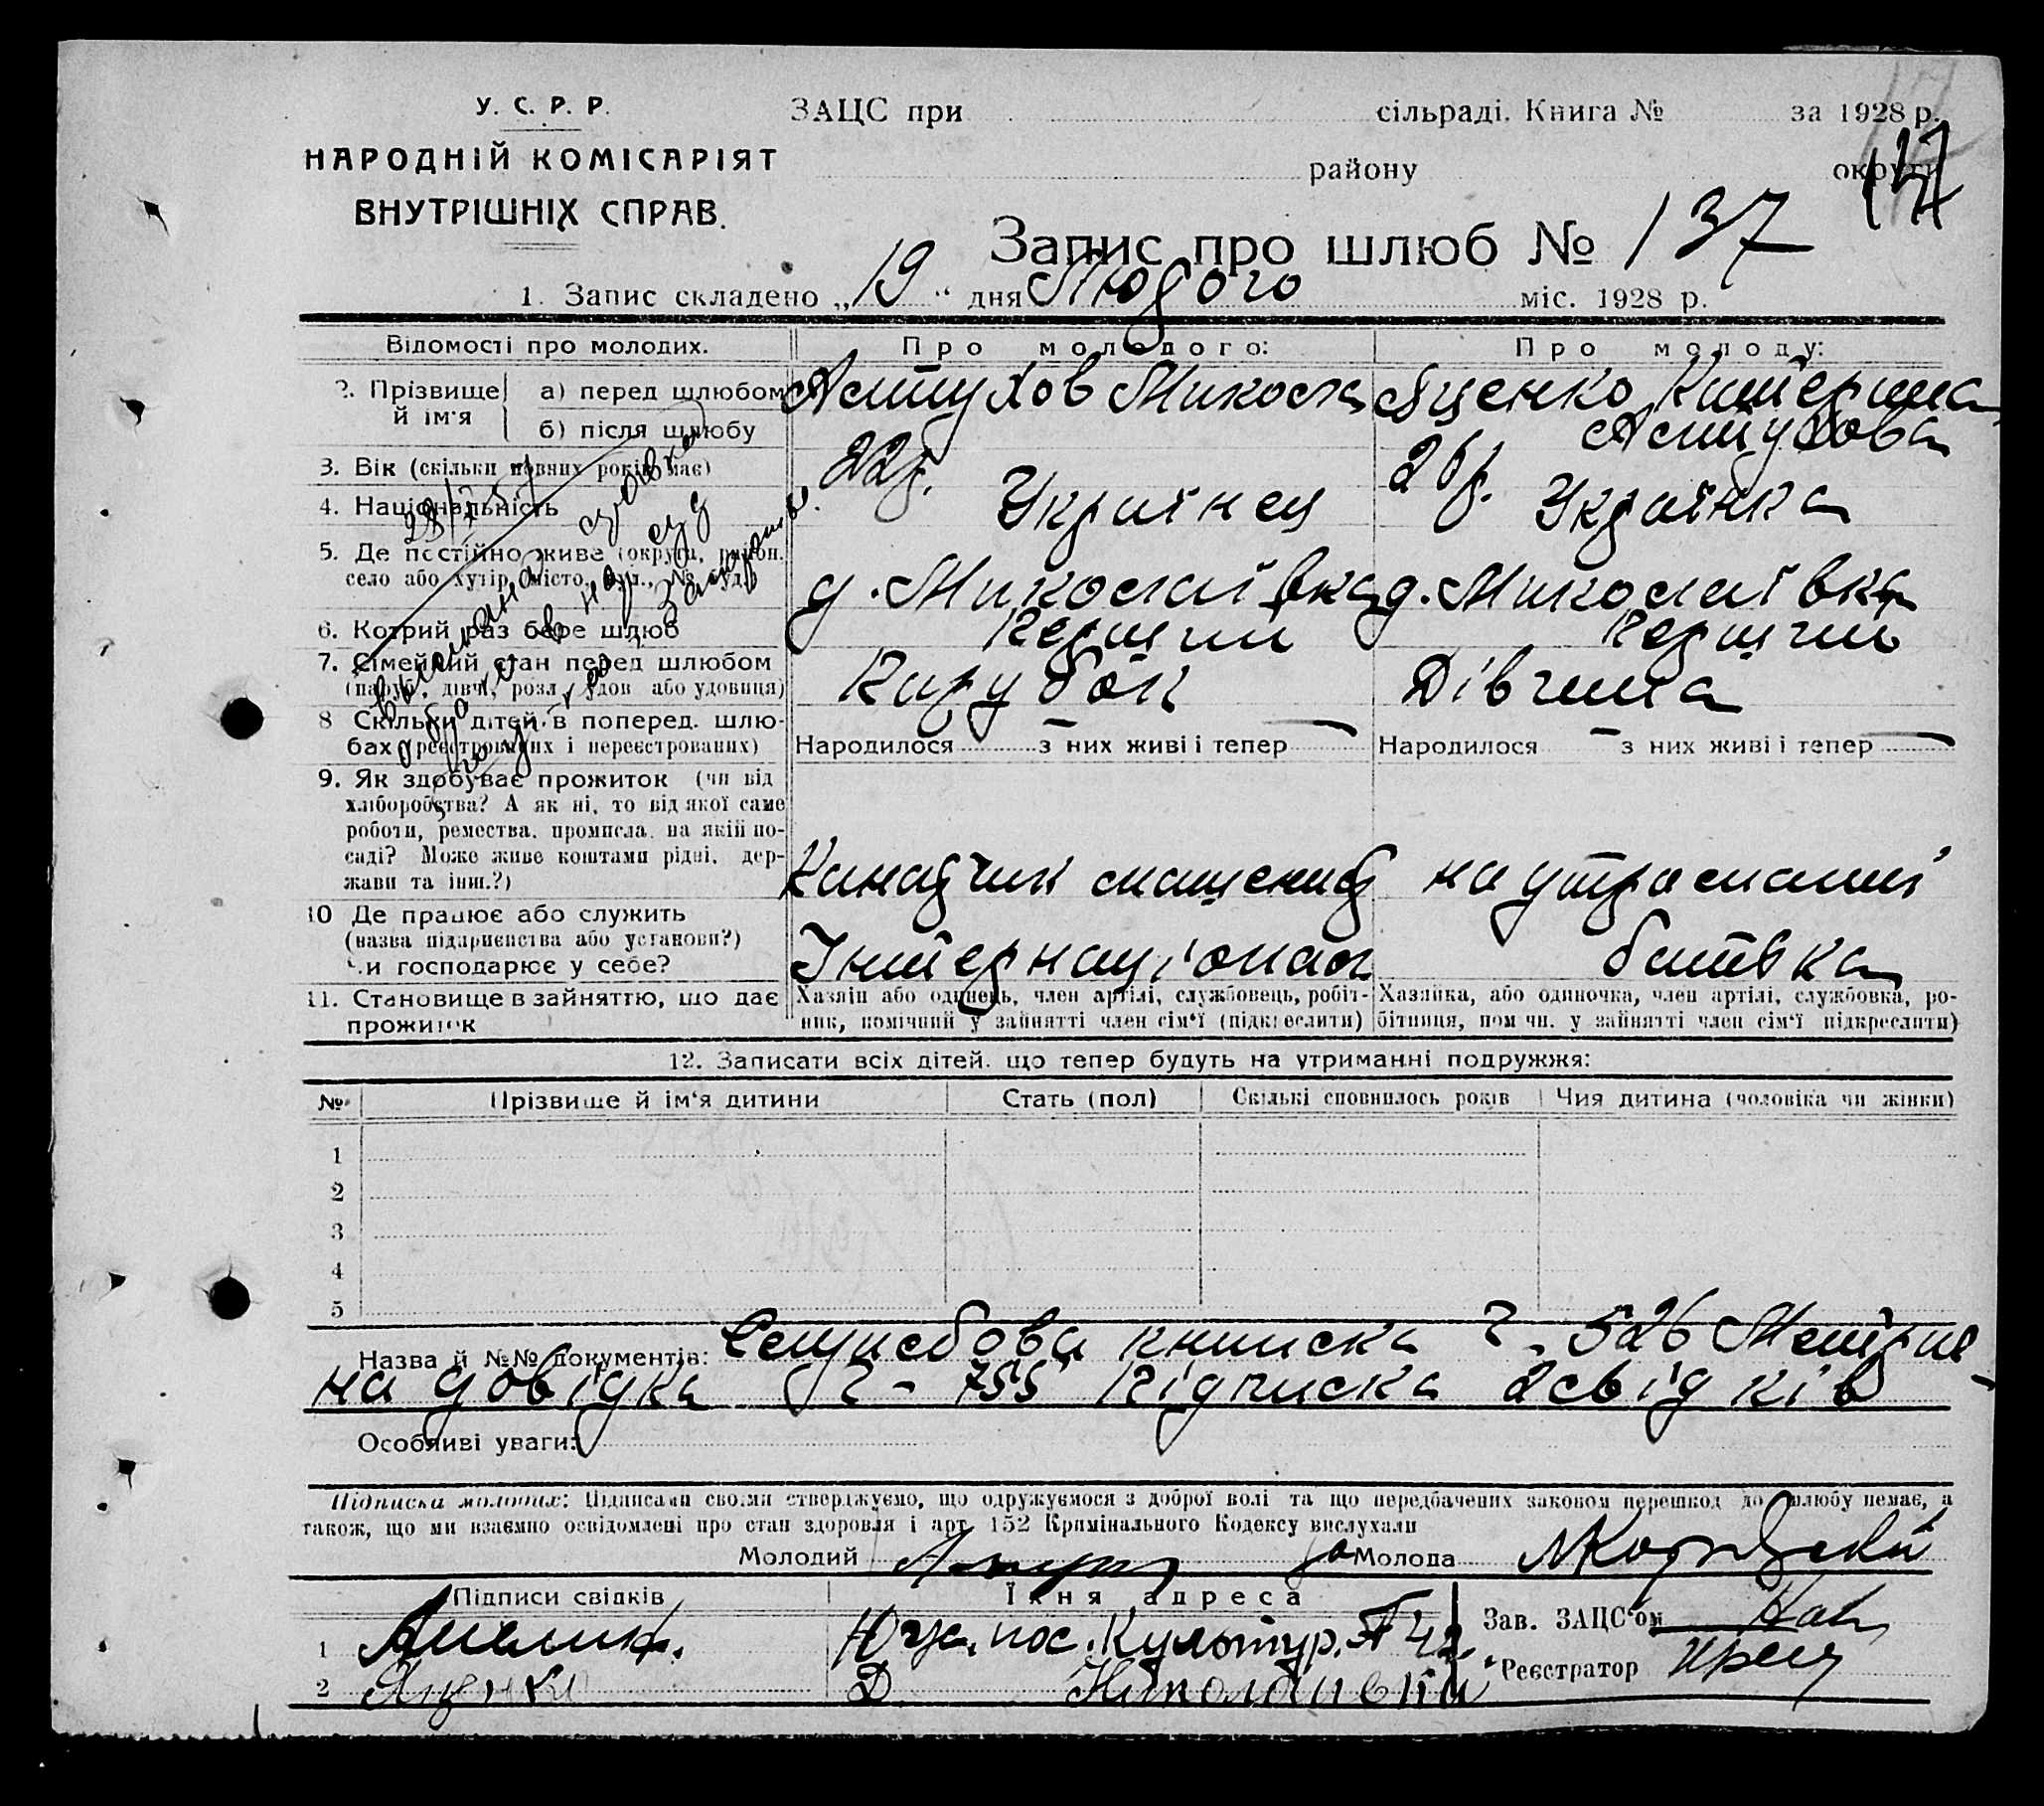 У. С. Р. Р.
НАРОДНІЙ КОМІСАРІЯТ
ВНУТРІШНІХ СПРАВ.
ЗАЦС при сільраді. Книга № за 1928 р.
району округи
Запис про шлюб № 137
1. Запис складено „19“ дня Лютого міс. 1928 р.
Відомості про молодих.
Про молодого:
Про молоду:
2. Прізвище й ім'я
а) перед шлюбом
Астухов Микола
Яценко Катерина
б) після шлюбу
Астухова
3. Вік (скільки повних років має)
22р.
4. Національність
Українец
Українка
5. Де постійно живе (округа, район.
село або хутір, місто, вул., № буд.)
д. Миколаївка
д. Миколаївка
6. Котрий раз бере шлюб
Перший
Перший
7. Сімейний стан перед шлюбом
(паруб., дівч., розл., удов. або удовиця)
Парубок
Дівчина
8 Скільки дітей в поперед. шлю-
бах (реєстрованих і нереєстрованих)
Народилося — з них живі і тепер —
Народилося — з них живі і тепер —
9. Як здобуває прожиток (чи від
хліборобства? А як ні, то від якої саме
роботи, ремества, промисла, на якій по-
саді? Може живе коштами рідні, дер-
жави та інш.?)
на утриманні
10 Де працює або служить
(назва підприємства або установи?)
чи господарює у себе?
Інтернаціонал
батька
11. Становище в зайняттю, що дає
прожиток
Хазяїн або одинець, член артілі, службовець, робіт-
ник, помічний у зайнятті член сім'ї (підкреслити)
Хазяйка, або одиночка, член артілі, службовка, ро-
бітниця, пом чн. у зайнятті член сім'ї підкреслити)
12. Записати всіх дітей, що тепер будуть на утриманні подружжя:
№ Прізвище й ім'я дитини Стать (пол) Скількі сповнилось років Чия дитина (чоловіка чи жінки)
1
2
3
4
5
Назва й №№ документів: Служебова книжка Ч. 526 Метрич-
на довідка Ч - 755 Підписка 2 свідків
Особливі уваги:
Підписка молодих: Підписами своїми стверджуємо, що одружуємося з доброї волі та що передбачених законом перешкод до шлюбу немає, а
також, що ми взаємно освідомлені про стан здоровля і арт. 152 Кримінального Кодексу вислухали
Молодий Молода
Підписи свідків
Їхня адреса
Зав. ЗАЦС'ом
1 Юж. пос. Культур. 42
Реєстратор
2 Яценко Д Николаевка